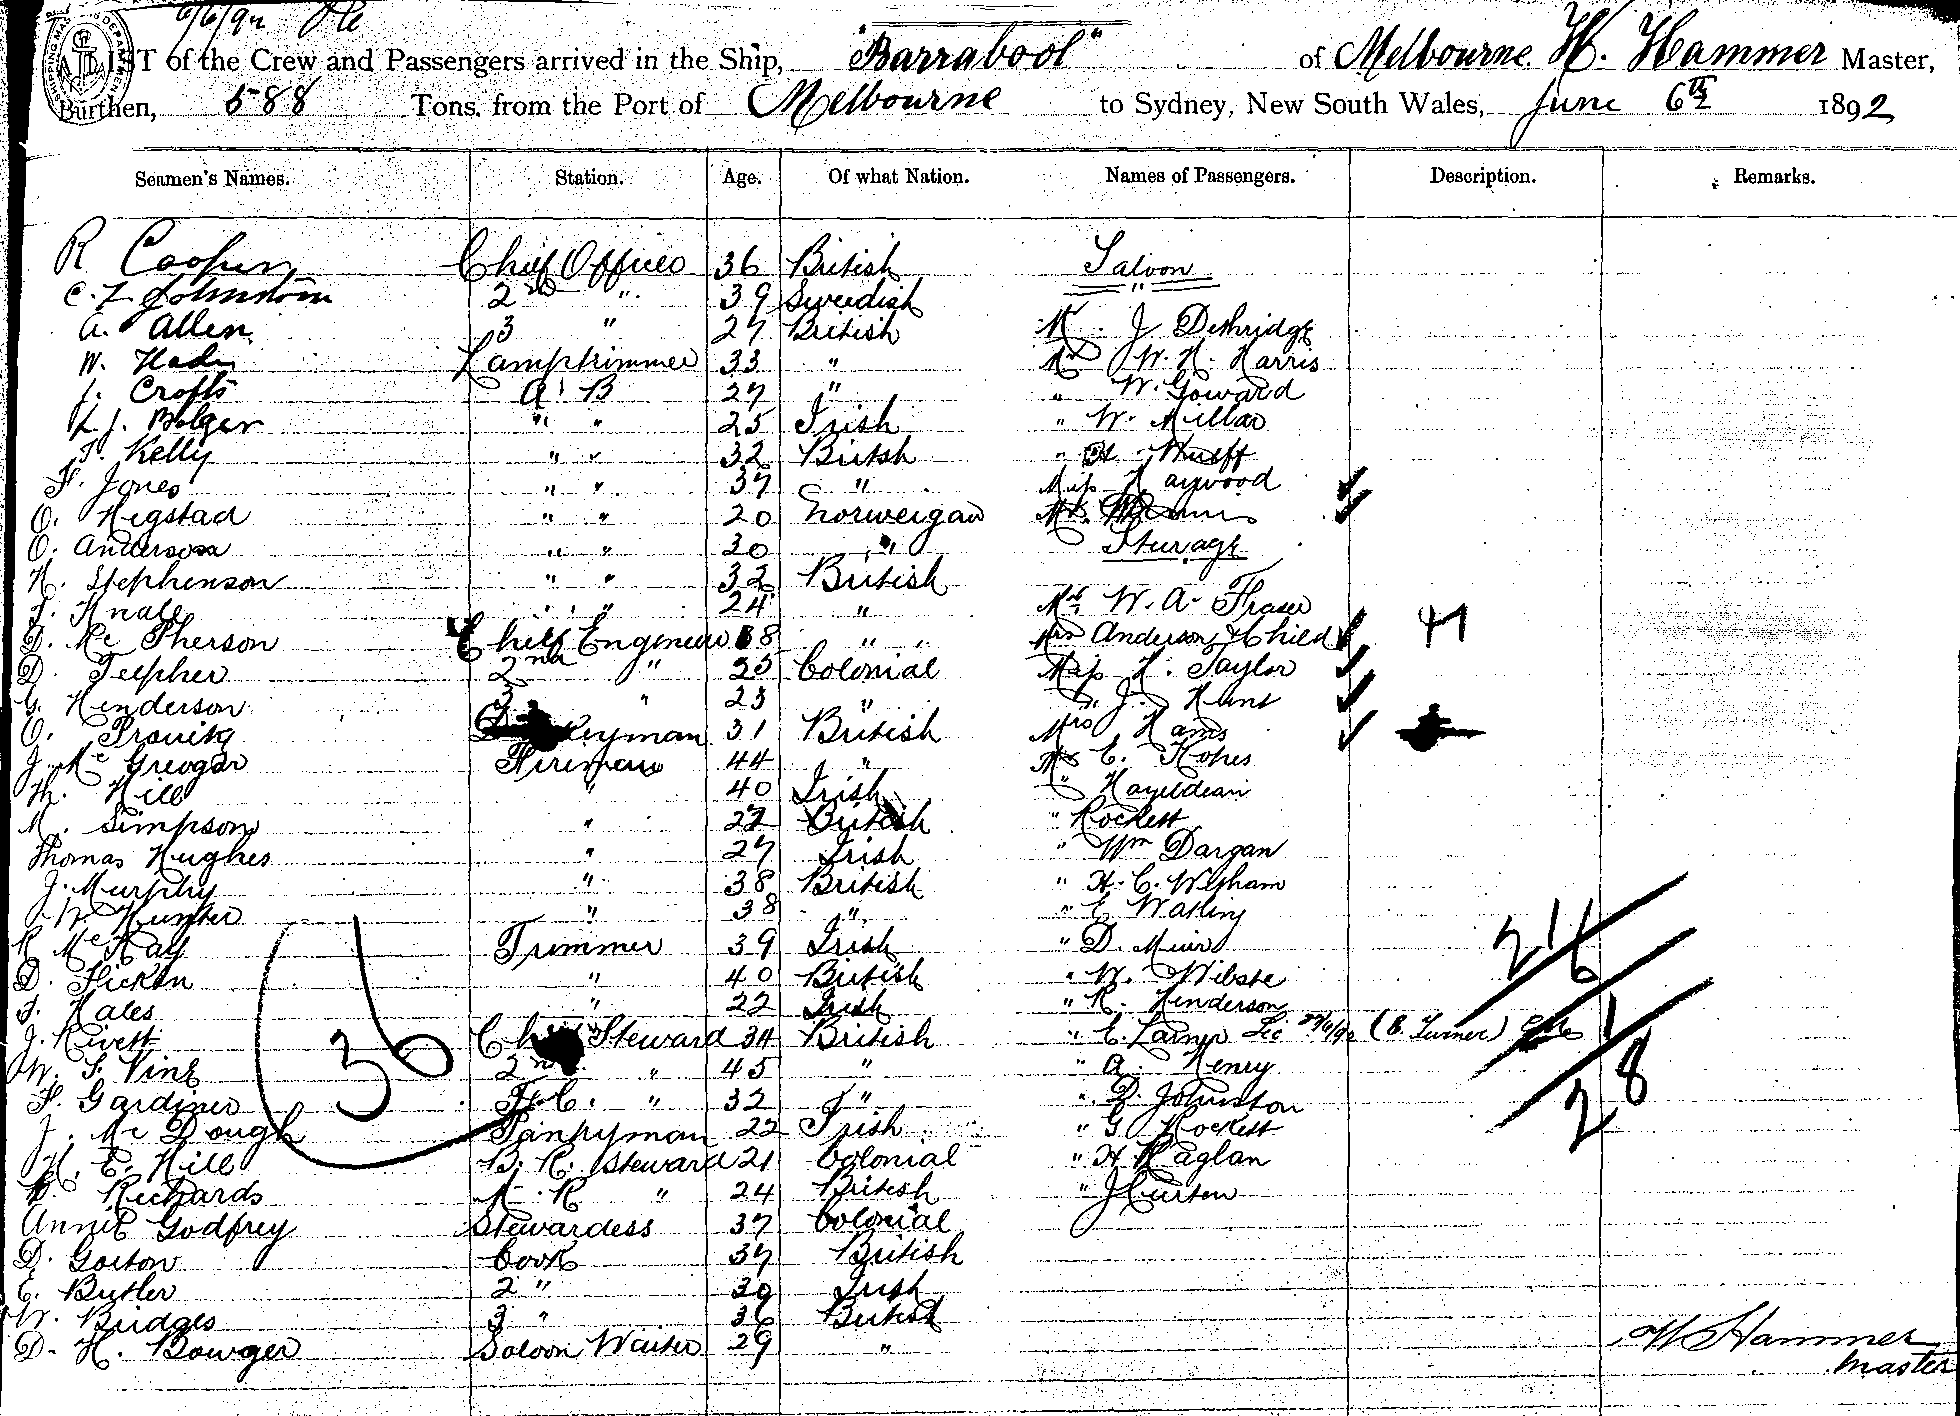 6/6/92
LIST of the Crew and Passengers arrived in the Ship, "Barrabool" of Melbourne. H. Hammer Master,
Burthen, 588 Tons, from the Port of Melbourne to Sydney, New South Wales, June 6th 1892
Seamen's Names. Station. Age. Of what Nation. Names of Passengers. Description. Remarks.
R Cooper Chief Officer 36 British Saloon
C. L Johnstom 2nd " 39 Swedish "
A. Allen 3 " 27 British Mr J Dethridge
W. Lamptrimmer 33 " Mr W. H. Harris
J. Crofts A B 27 " " W. Goward
L. J. Bolger " " 25 Irish " W. Millar
T. Kelly " " 32 British " H.
F. Jones " " 37 " Miss Haywood
O. Higstad " " 20 Norweigan
O. Anderson " " 30 " Sturage
H. Stephenson " " 32 British
J. " 24 " Mr W. A. Fraser
D. Mc Pherson Chief Engineer 38 " " Mrs Anderson & Child
D. Telpher 2nd " 25 Colonial Miss H. Taylor
G. Henderson 3 " 23 " " J. Hunt
O. 31 British Mrs
J. Mc Gregor Fireman 44 " Mr E.
Th. Hill " 40 Irish "
M. Simpson " British " Rockett
Thomas Hughes " 27 Irish " Wm Dargan
J. Murphy " 38 British " H. C. Witham
W. Hunter " 38 " " E Watling
R Mc Kay Trimmer 39 Irish " D. Muir
D. Flicken " 40 British " W. Webste 216
F. Hales " 22 Irish " R. Henderson
J. Rivett Chief Steward 34 British " E. Larner (E. Turner) 1
W. S. Vine 2nd " 45 " " A. Henry
36
F. Gardiner F. C. " 32 " " D. Johnston 28
J. Mc Dough Pantryman 22 Irish " G Rockett
H. E. Hill B. R. Steward 21 Colonial " H Raglan
Richards M. R " 24 British " J Curten
Annie Godfrey Stewardess 37 Colonial
D. Gorton Cook 37 British
E. Butler 2 " 30 Irish
W. Bridges 3 " 36 British
D. H. Bowger Saloon Waiter 29 "
H Hammer
Master